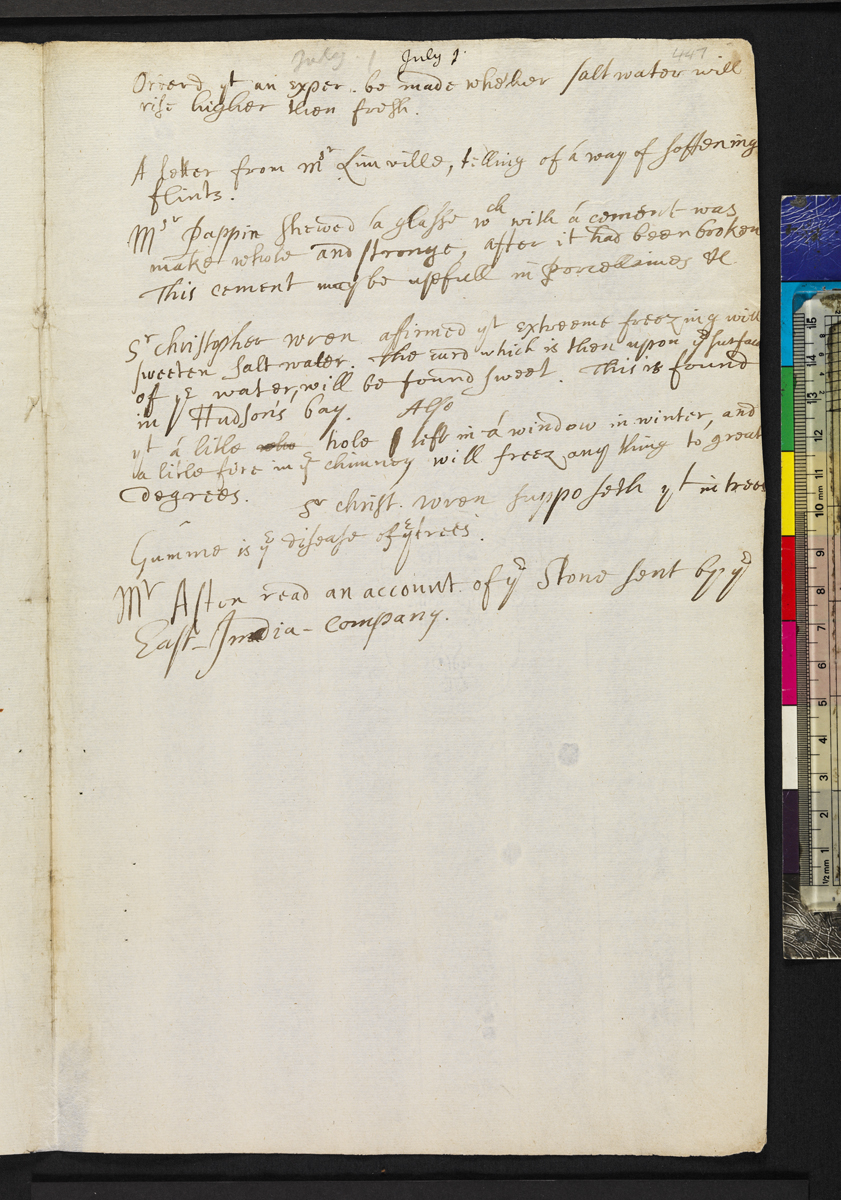 July 1 July 1. 447
Orrerd yt an exper. be made whether salt water will
rise higher then fresh.
A letter from Mosr Linville, telling of a way of softening
flints.
Msr Pappin shewed a glasse wch with a cement was
make whole and stronge, after it had been broken
This cement may be usefull in Porcellaines &c
Sr Christopher Wren affirmed yt extreeme freezing will
sweeten salt water. The curd which is then upon ye surface
of ye water, will be found sweet. This is found
in Hudson's bay. Also
yt a litle hole left in a window in winter, and
a litle fire in ye chimney will freez any thing to great
degrees. Sr Christ. Wren supposeth yt in trees
Gumme is ye disease of ye trees.
Mr Aston read an account of ye Stone sent by ye
East-India-company.